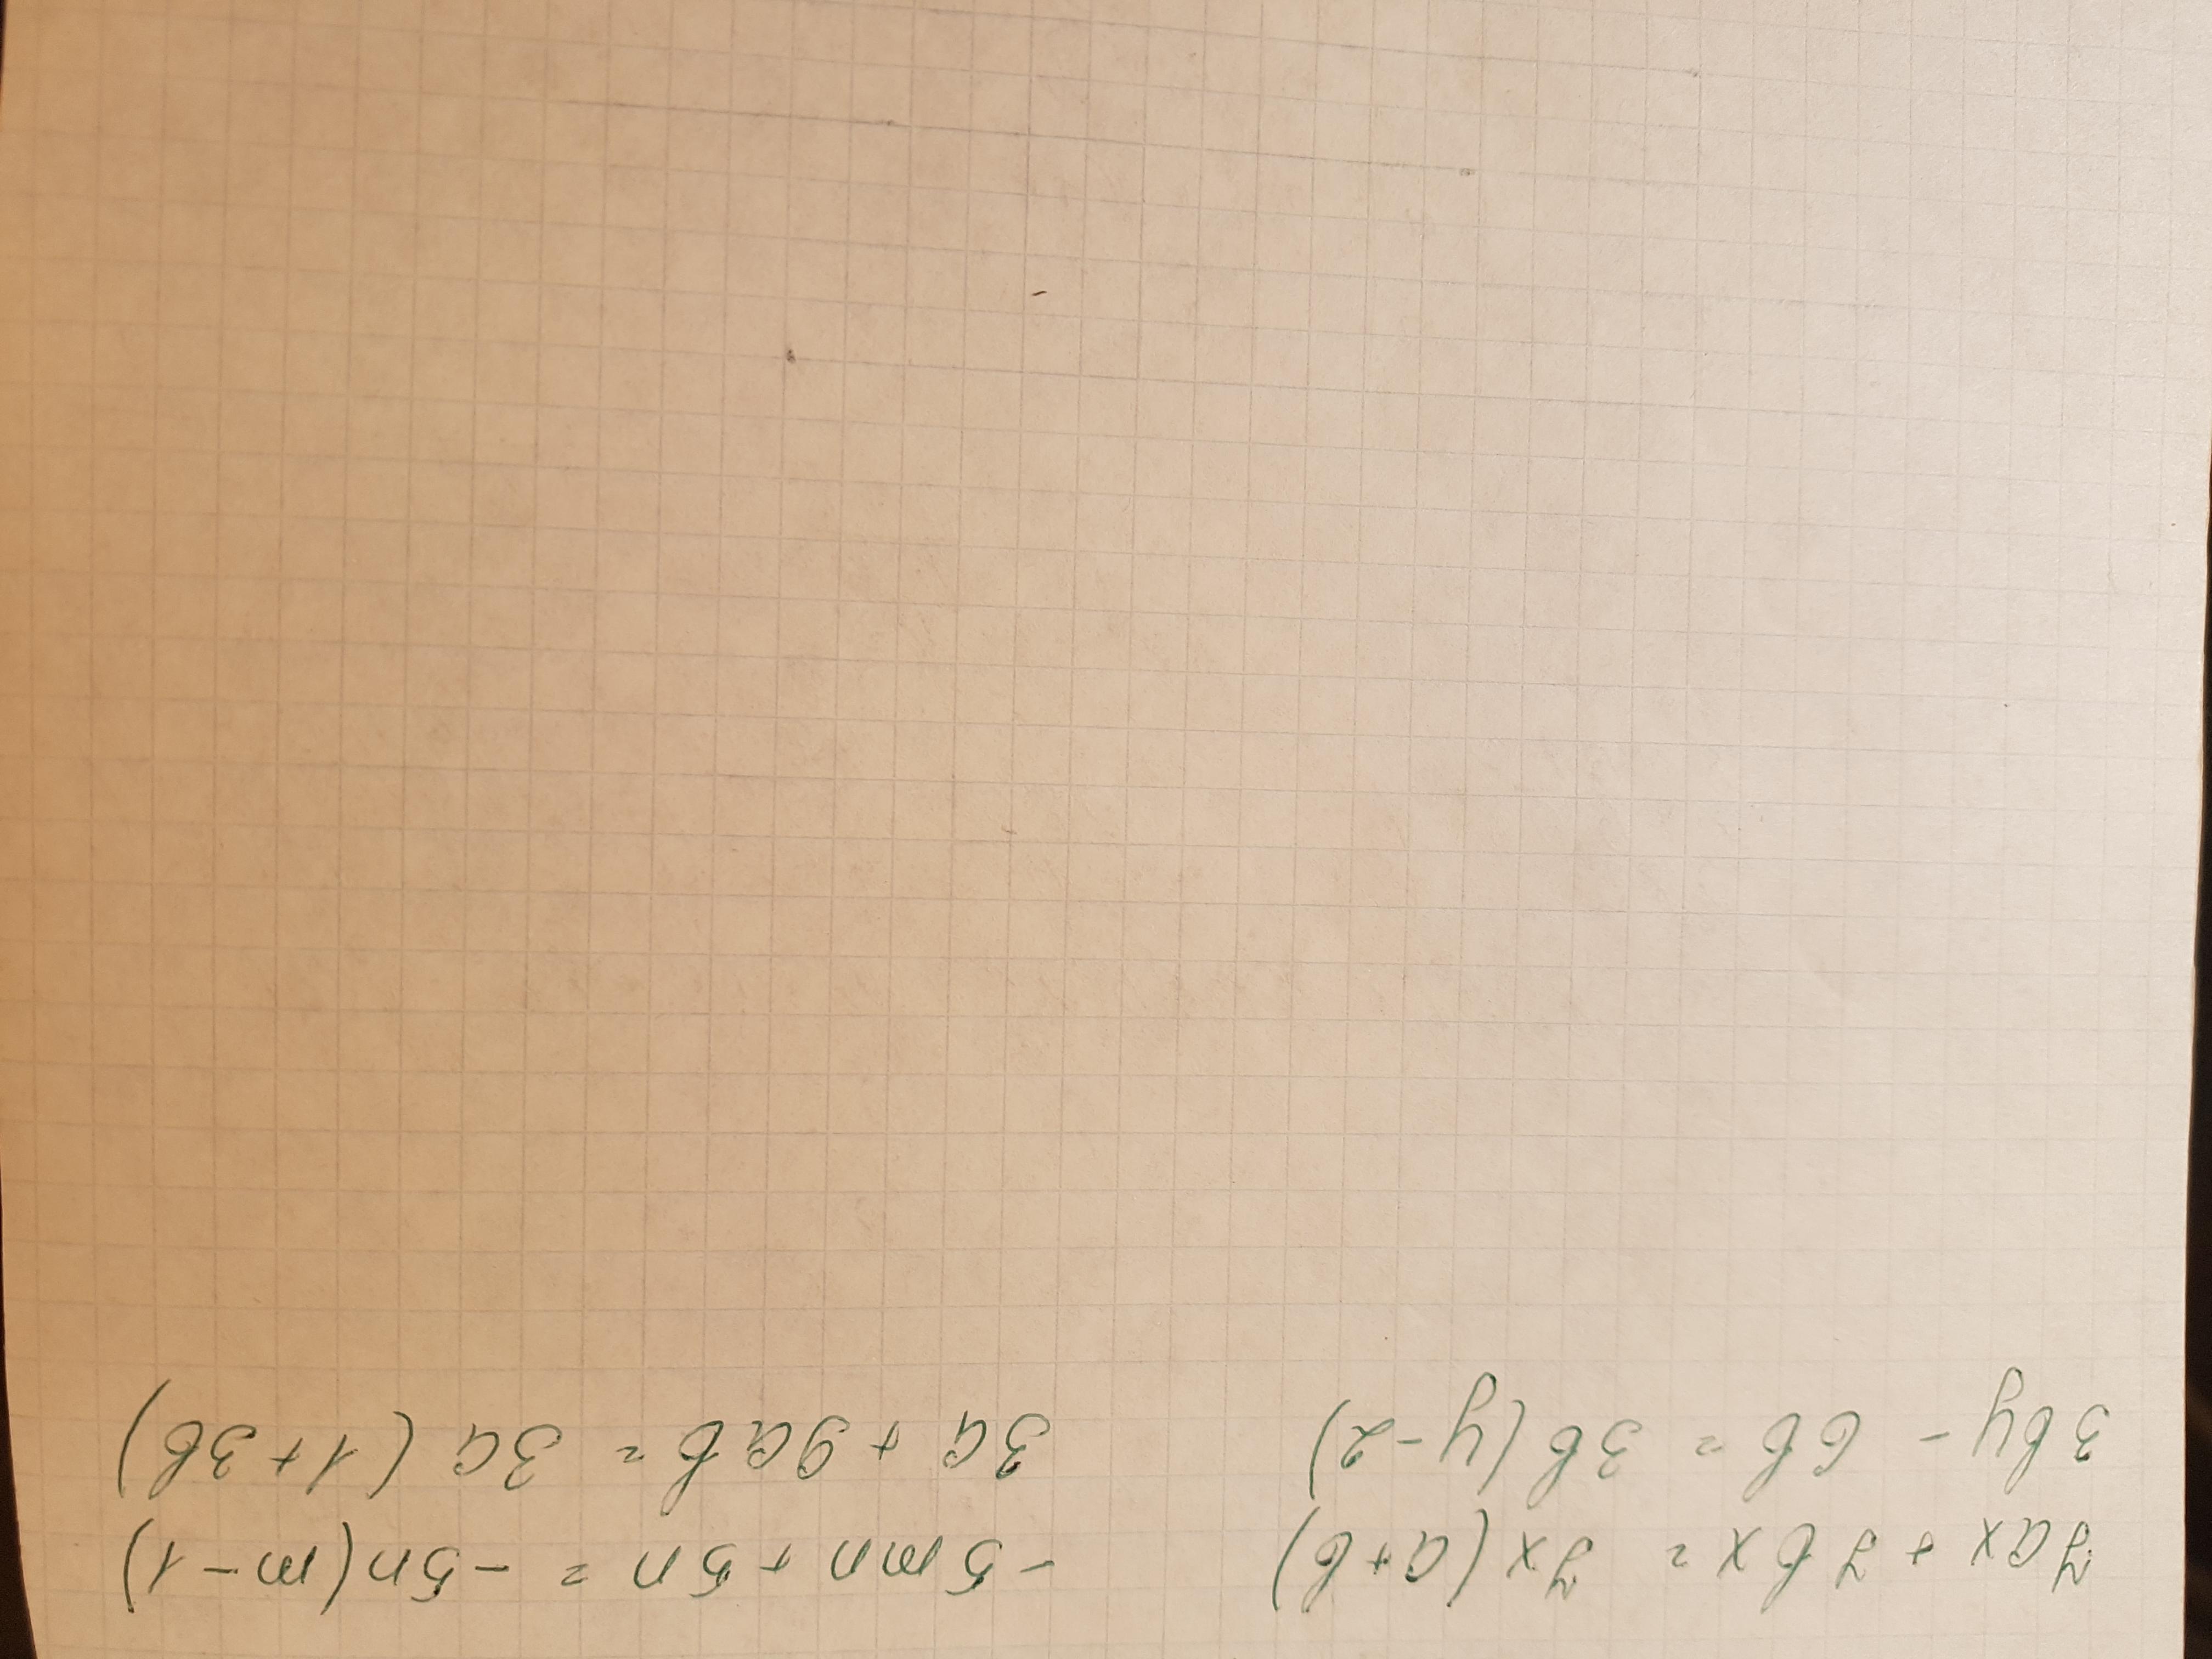 7ax + 7bx = 7x(a+b)
3by - 6b = 3b(y-2)
-5mn + 5n = -5n(m-1)
3a + 9ab = 3a(1+3b)